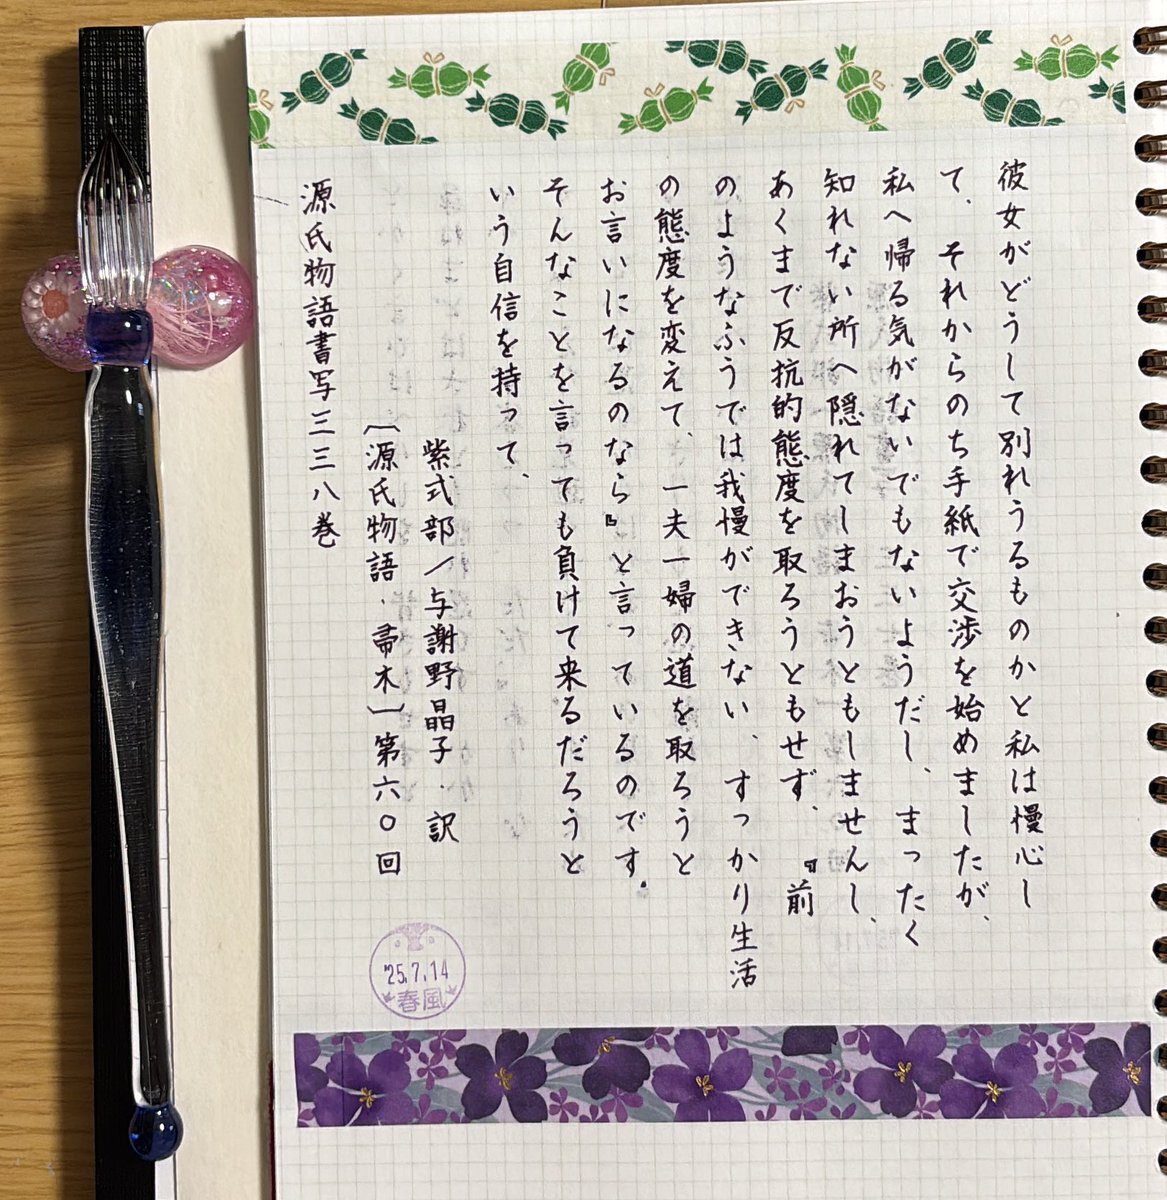 彼女がどうして別れうるものかと私は慢心し
て、それからのち手紙で交渉を始めましたが、
私へ帰る気がないでもないようだし、まったく
知れない所へ隠れてしまおうともしませんし、
あくまで反抗的態度を取ろうともせず、『前
のようなふうでは我慢ができない、すっかり生活
の態度を変えて、一夫一婦の道を取ろうと
お言いになるのなら』と言っているのです。
そんなことを言っても負けて来るだろうと
いう自信を持って、
紫式部／与謝野晶子・訳
〔源氏物語・帚木〕第六〇回
源氏物語書写三三八巻
'25.7.14
春風